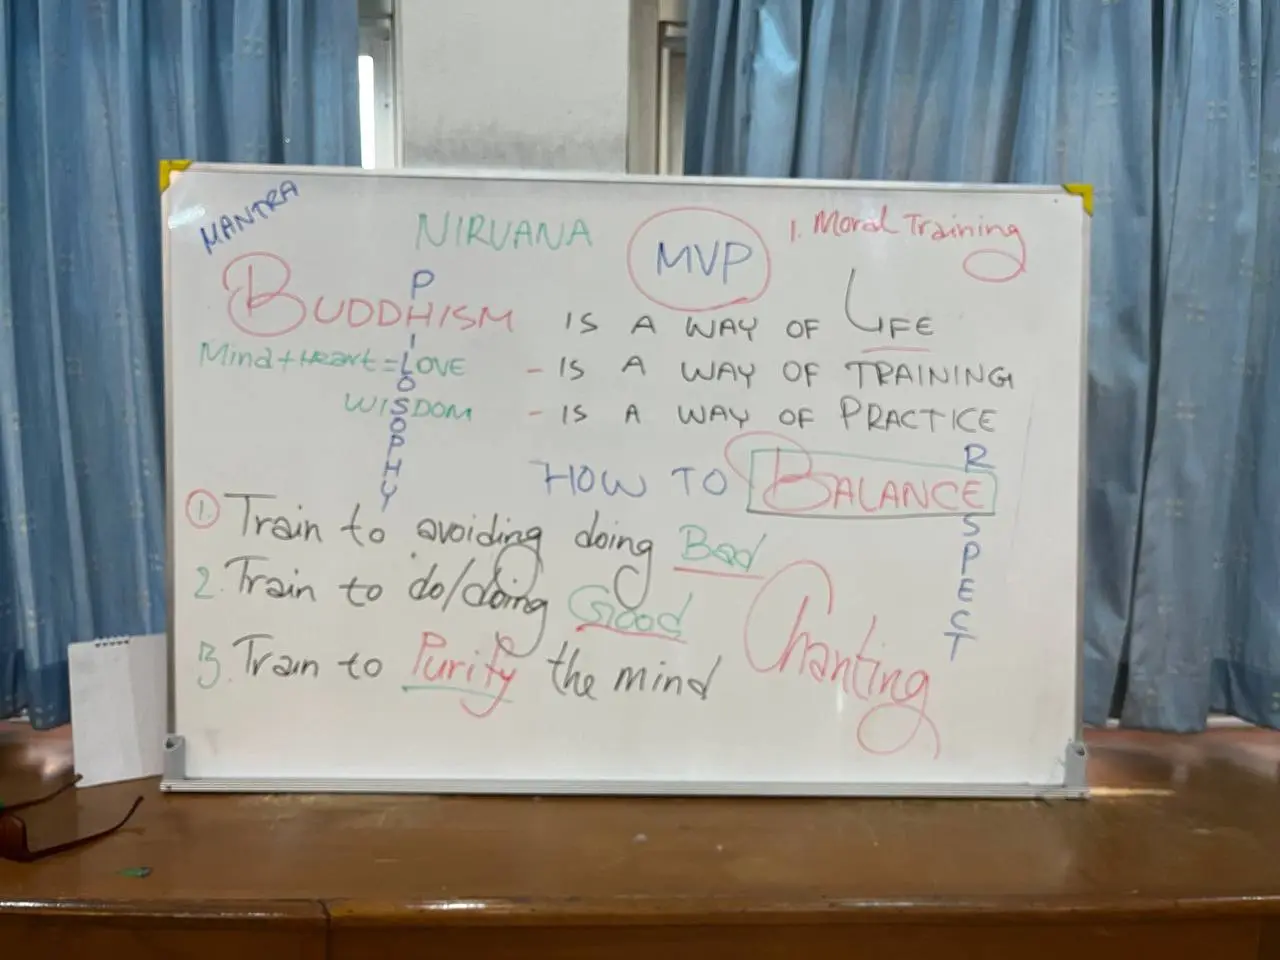 MANTRA
NIRVANA
MVP
1. Moral Training
BUDDHISM IS A WAY OF LIFE
Mind + Heart = LOVE
- IS A WAY OF TRAINING
WISDOM
- IS A WAY OF PRACTICE
PHILOSOPHY
HOW TO BALANCE
RESPECT
1. Train to avoiding doing Bad
2. Train to do/doing Good
3. Train to Purify the mind
Chanting